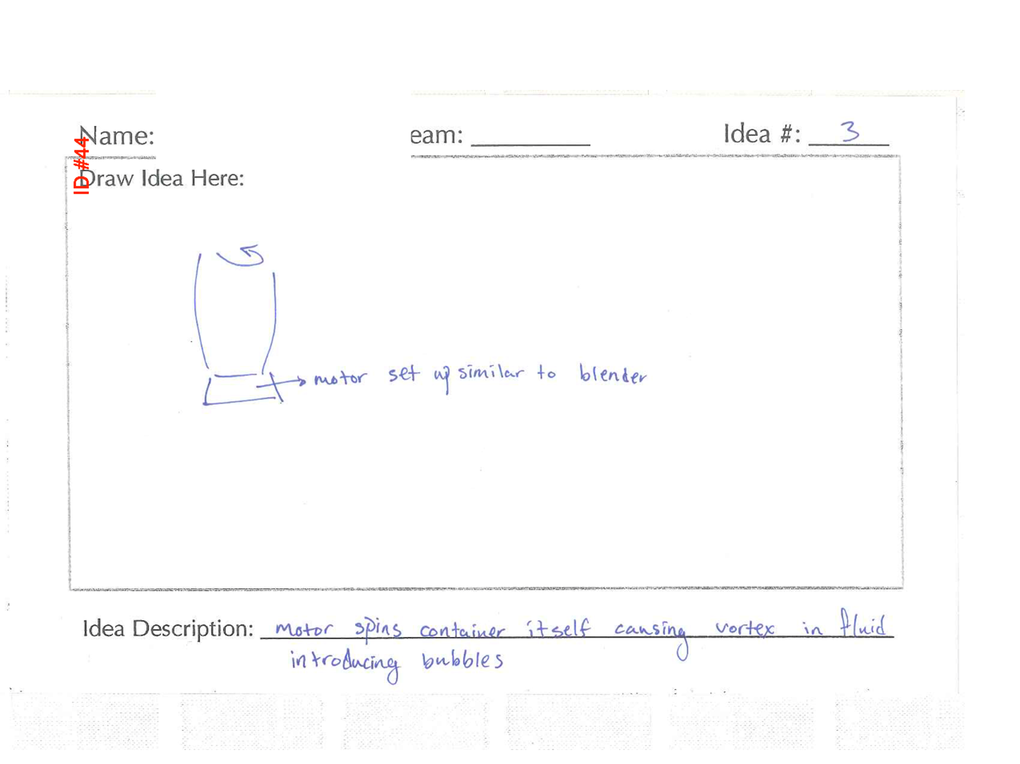 Name: eam: Idea #: 3
ID #44
Draw Idea Here:
motor set up similar to blender
Idea Description: motor spins container itself causing vortex in fluid
introducing bubbles